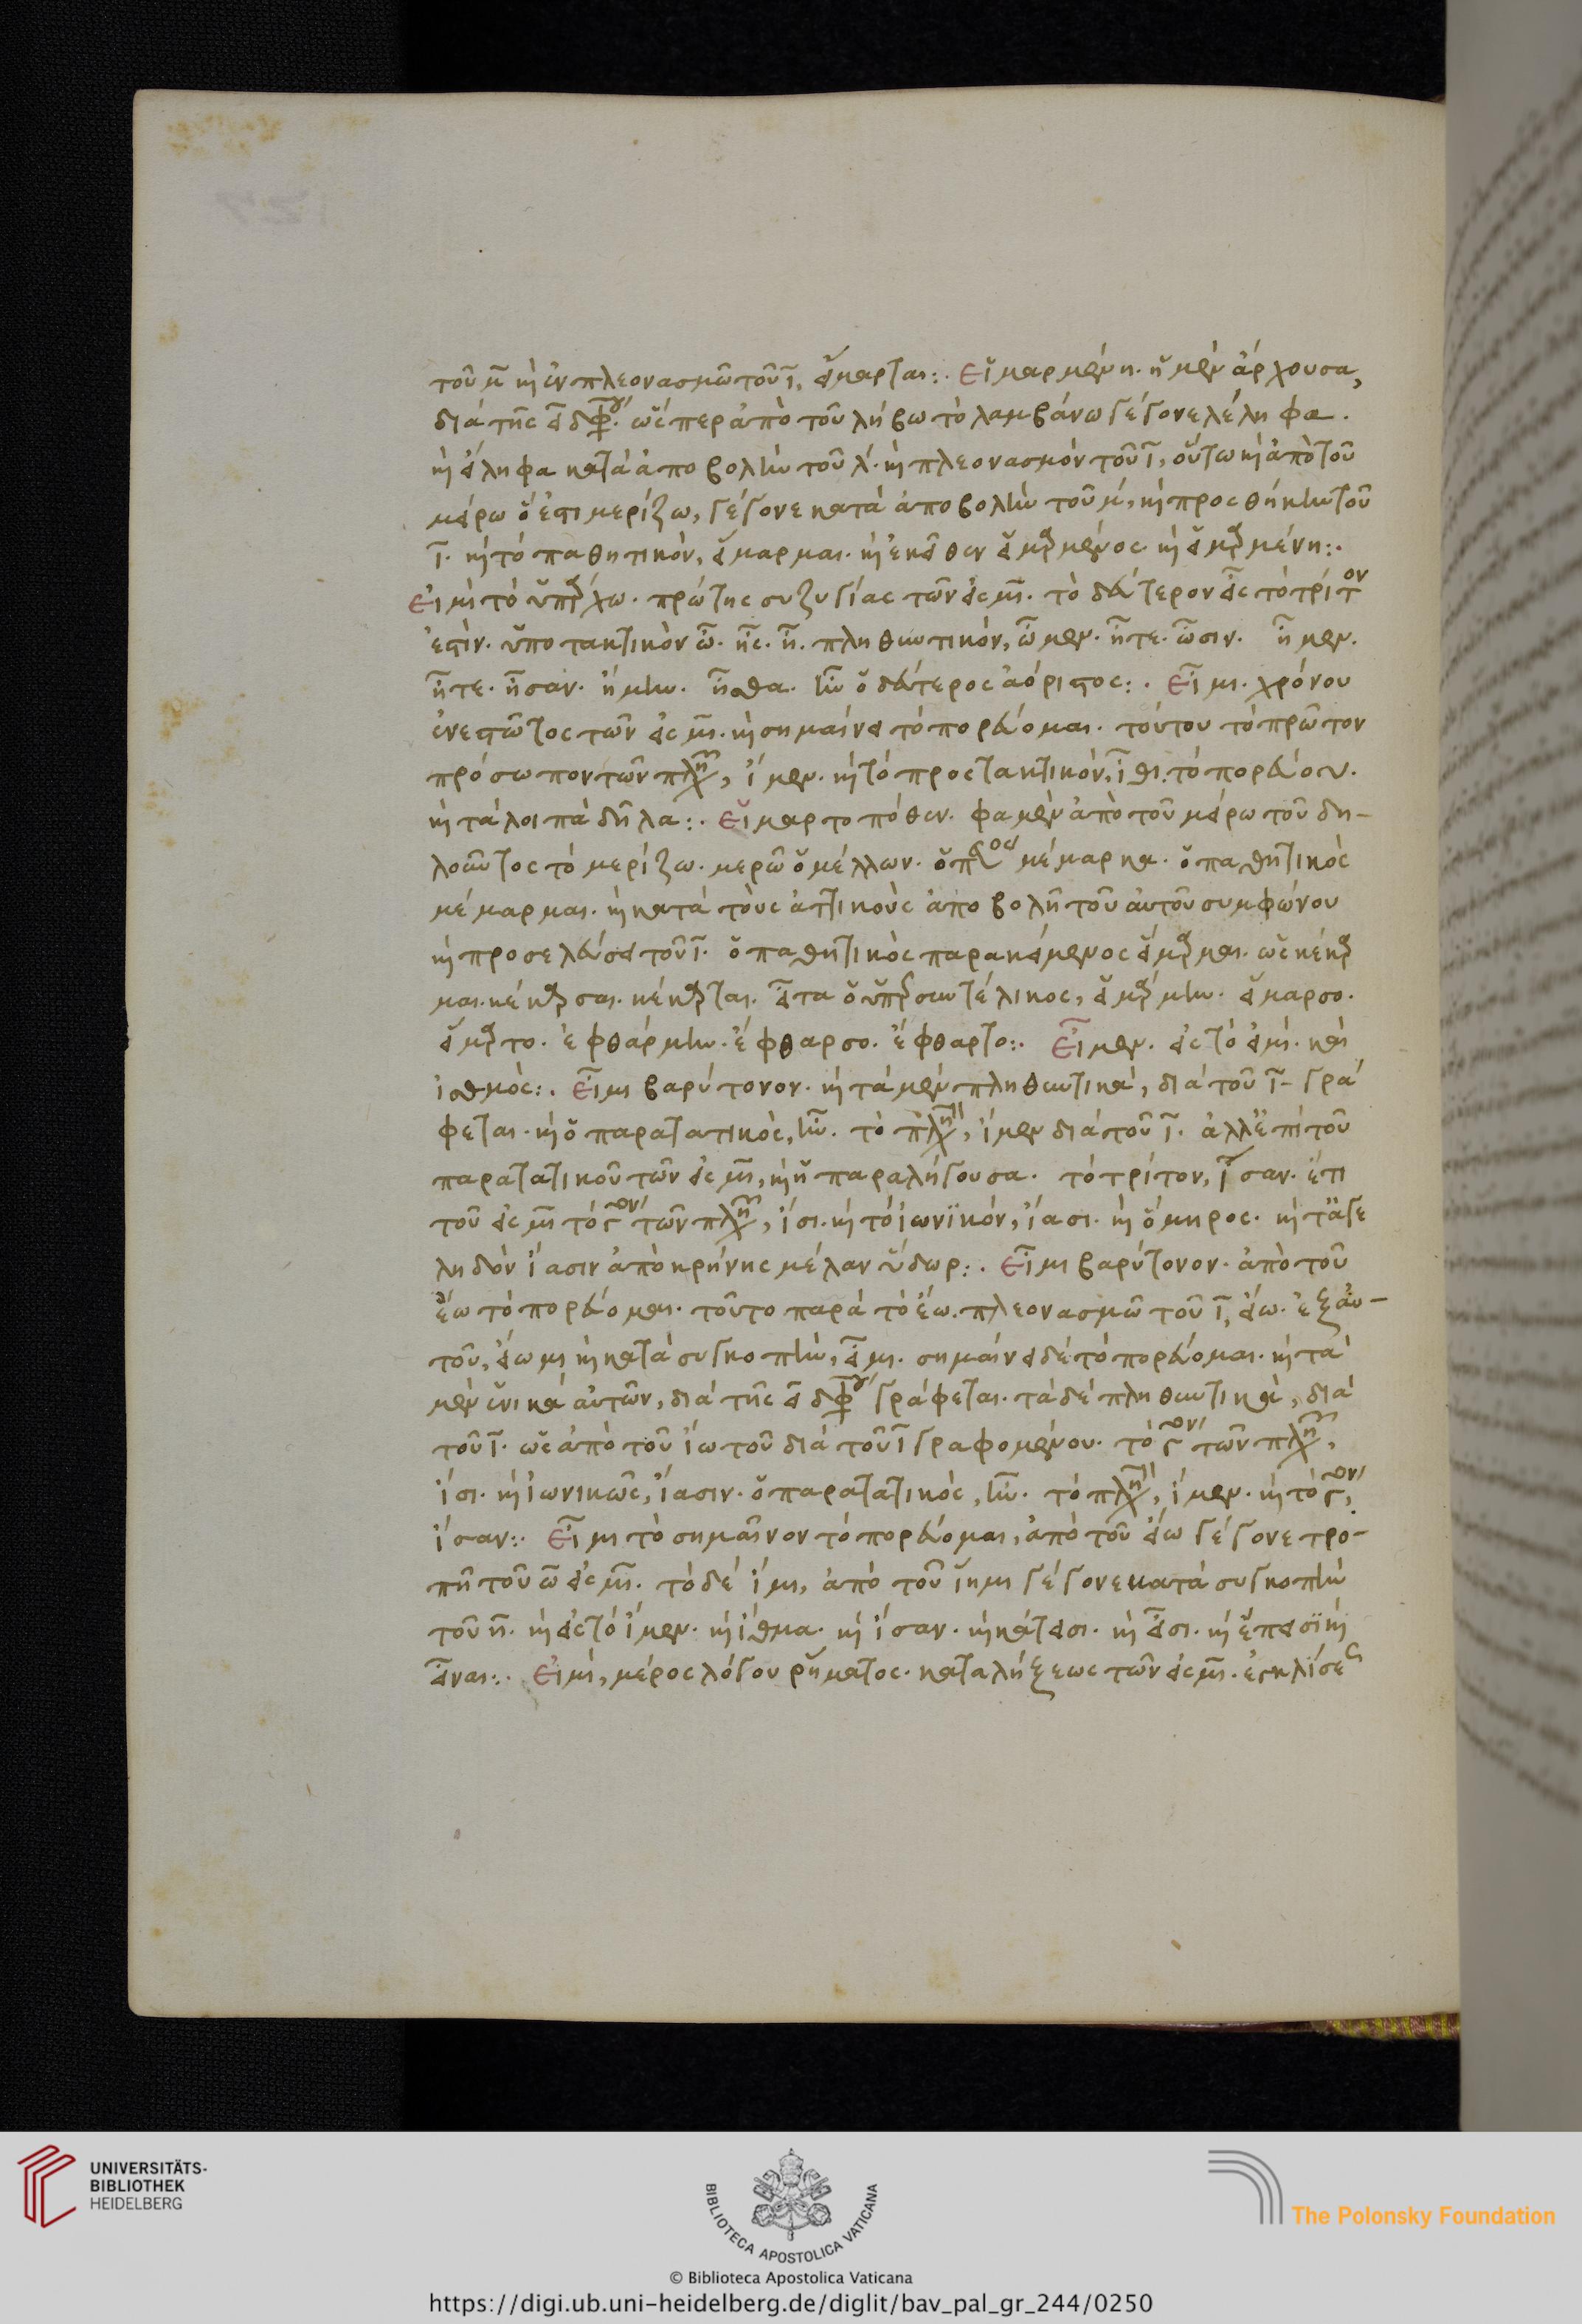 τοῦ μ̄ κὶ ἐν πλεονασμῶ τοῦ ῑ, εἵμαρται:· Εἱμαρμένη· ἡ μὲν ἄρχουσα,
διὰ τῆς ει διφ· ὥσπερ ἀπὸ τοῦ λήβω τὸ λαμβάνω γέγονε λέληφα·
κὶ είληφα κατὰ ἀποβολὴν τοῦ λ· κὶ πλεονασμὸν τοῦ ῑ, οὕτω κὶ ἀπὸ τοῦ
μείρω ὅ ἐστι μερίζω, γέγονε κατὰ ἀποβολὴν τοῦ μ, κὶ προσθήκην τοῦ
ῑ· κὶ τὸ παθητικὸν, εἵμαρμαι· κὶ ἐκεῖθεν εἱμαρμένος κὶ εἱμαρμένη:·
Εἰμὶ τὸ ὑπάρχω· πρώτης συζυγίας τῶν εἰς μῑ· τὸ δεύτερον εἶς τὸ τρίτον
ἐστὶν· ὑποτακτικὸν ὦ· ἦς· ἦ· πληθυντικόν, ὦμεν· ἦτε· ὦσιν· ἦμεν·
ἦτε· ἦσαν· ἤμην· ἦσθα· ἦν ὁ δεύτερος ἀόριστος:· Εἶμι· χρόνου
ἐνεστῶτος τῶν εἰς μῑ· κὶ σημαίνει τὸ πορεύομαι· τούτου τὸ πρῶτον
πρόσωπον τῶν πληθ, ἴμεν· κὶ τὸ προστακτικὸν, ἴθι· τὸ πορεύου·
κὶ τὰ λοιπὰ δῆλα:· Εἵμαρτο πόθεν· φαμὲν ἀπὸ τοῦ μείρω τοῦ δη-
λοῦντος τὸ μερίζω· μερῶ ὁ μέλλων· ὁ π μέμαρκα· ὁ παθητικὸς
μέμαρμαι· κὶ κατὰ τοὺς ἀττικοὺς ἀποβολῆ τοῦ αὐτοῦ συμφώνου
κὶ προσελεύσει τοῦ ῑ· ὁ παθητικὸς παρακείμενος εἵμαρμαι· ὡς κέκαρ
μαι· κέκαρσαι· κέκαρται· εἶτα ὁ ὑπερσυντέλικος, εἱμάρμην· εἵμαρσο·
εἵμαρτο· ἐφθάρμην· ἔφθαρσο· ἔφθαρτο:· Εἴμεν· εἰς τὸ εἰμί· καὶ
ἰσθμός:· Εἶμι βαρύτονον· κὶ τὰ μὲν πληθυντικά, διὰ τοῦ ῑ- γρά
φεται· κὶ ὁ παρατατικὸς, ἦν· τὸ πληθ, ἴμεν διὰ τοῦ ῑ· ἀλλ' ἐπὶ τοῦ
παρατατικοῦ τῶν εἰς μῑ, κὶ ἡ παραλήγουσα· τὸ τρίτον, ἴσαν· ἔτι
τοῦ εἰς μῑ τὸ γον τῶν πληθ, ἴσι· κὶ τὸ ἰωνϊκόν, ἴασι· κὶ ὅμηρος· κὶ τἀγε
ληδὸν ἴασιν ἀπὸ κρήνης μέλαν ὕδωρ:· Εἶμι βαρύτονον· ἀπὸ τοῦ
ἕω τὸ πορεύομαι· τοῦτο παρὰ τὸ ἕω· πλεονασμῶ τοῦ ῑ, είω· ἐξ αὐ-
τοῦ, είωμι κὶ κατὰ συγκοπὴν, εἶμι· σημαίνει δὲ τὸ πορεύομαι· κὶ τὰ
μὲν ἑνικὰ αὐτῶν, διὰ τῆς ει διφ γράφεται· τὰ δὲ πληθυντικὰ, διὰ
τοῦ ῑ· ὡς ἀπὸ τοῦ ἴω τοῦ διὰ τοῦ ῑ γραφομένου· τὸ γον τῶν πληθ,
ἴσι· κὶ ἰωνικῶς, ἴασιν· ὁ παρατατικὸς, ἦν· τὸ πληθ, ἴμεν· κὶ τὸ γον,
ἴσαν:· Εἶμι τὸ σημαῖνον τὸ πορεύομαι, ἀπὸ τοῦ είω γέγονε τρο-
πῆ τοῦ ω̄ εἰς μῑ· τὸ δὲ ἴμι, ἀπὸ τοῦ ἵημι γέγονε κατὰ συγκοπὴν
τοῦ η̄· κὶ εἰς τὸ ἴμεν· κὶ ἴθμα· κὶ ἴσαν· κὶ κάτεισι· κὶ εἶσι· κὶ ἔπεισϊ κὶ
εἶναι:· Εἰμὶ, μέρος λόγου ῥήματος· καταλήξεως τῶν εἰς μῑ· ἐγκλίσε
UNIVERSITÄTS-
BIBLIOTHEK
HEIDELBERG
BIBLIOTECA APOSTOLICA VATICANA
The Polonsky Foundation
© Biblioteca Apostolica Vaticana
https://digi.ub.uni-heidelberg.de/diglit/bav_pal_gr_244/0250